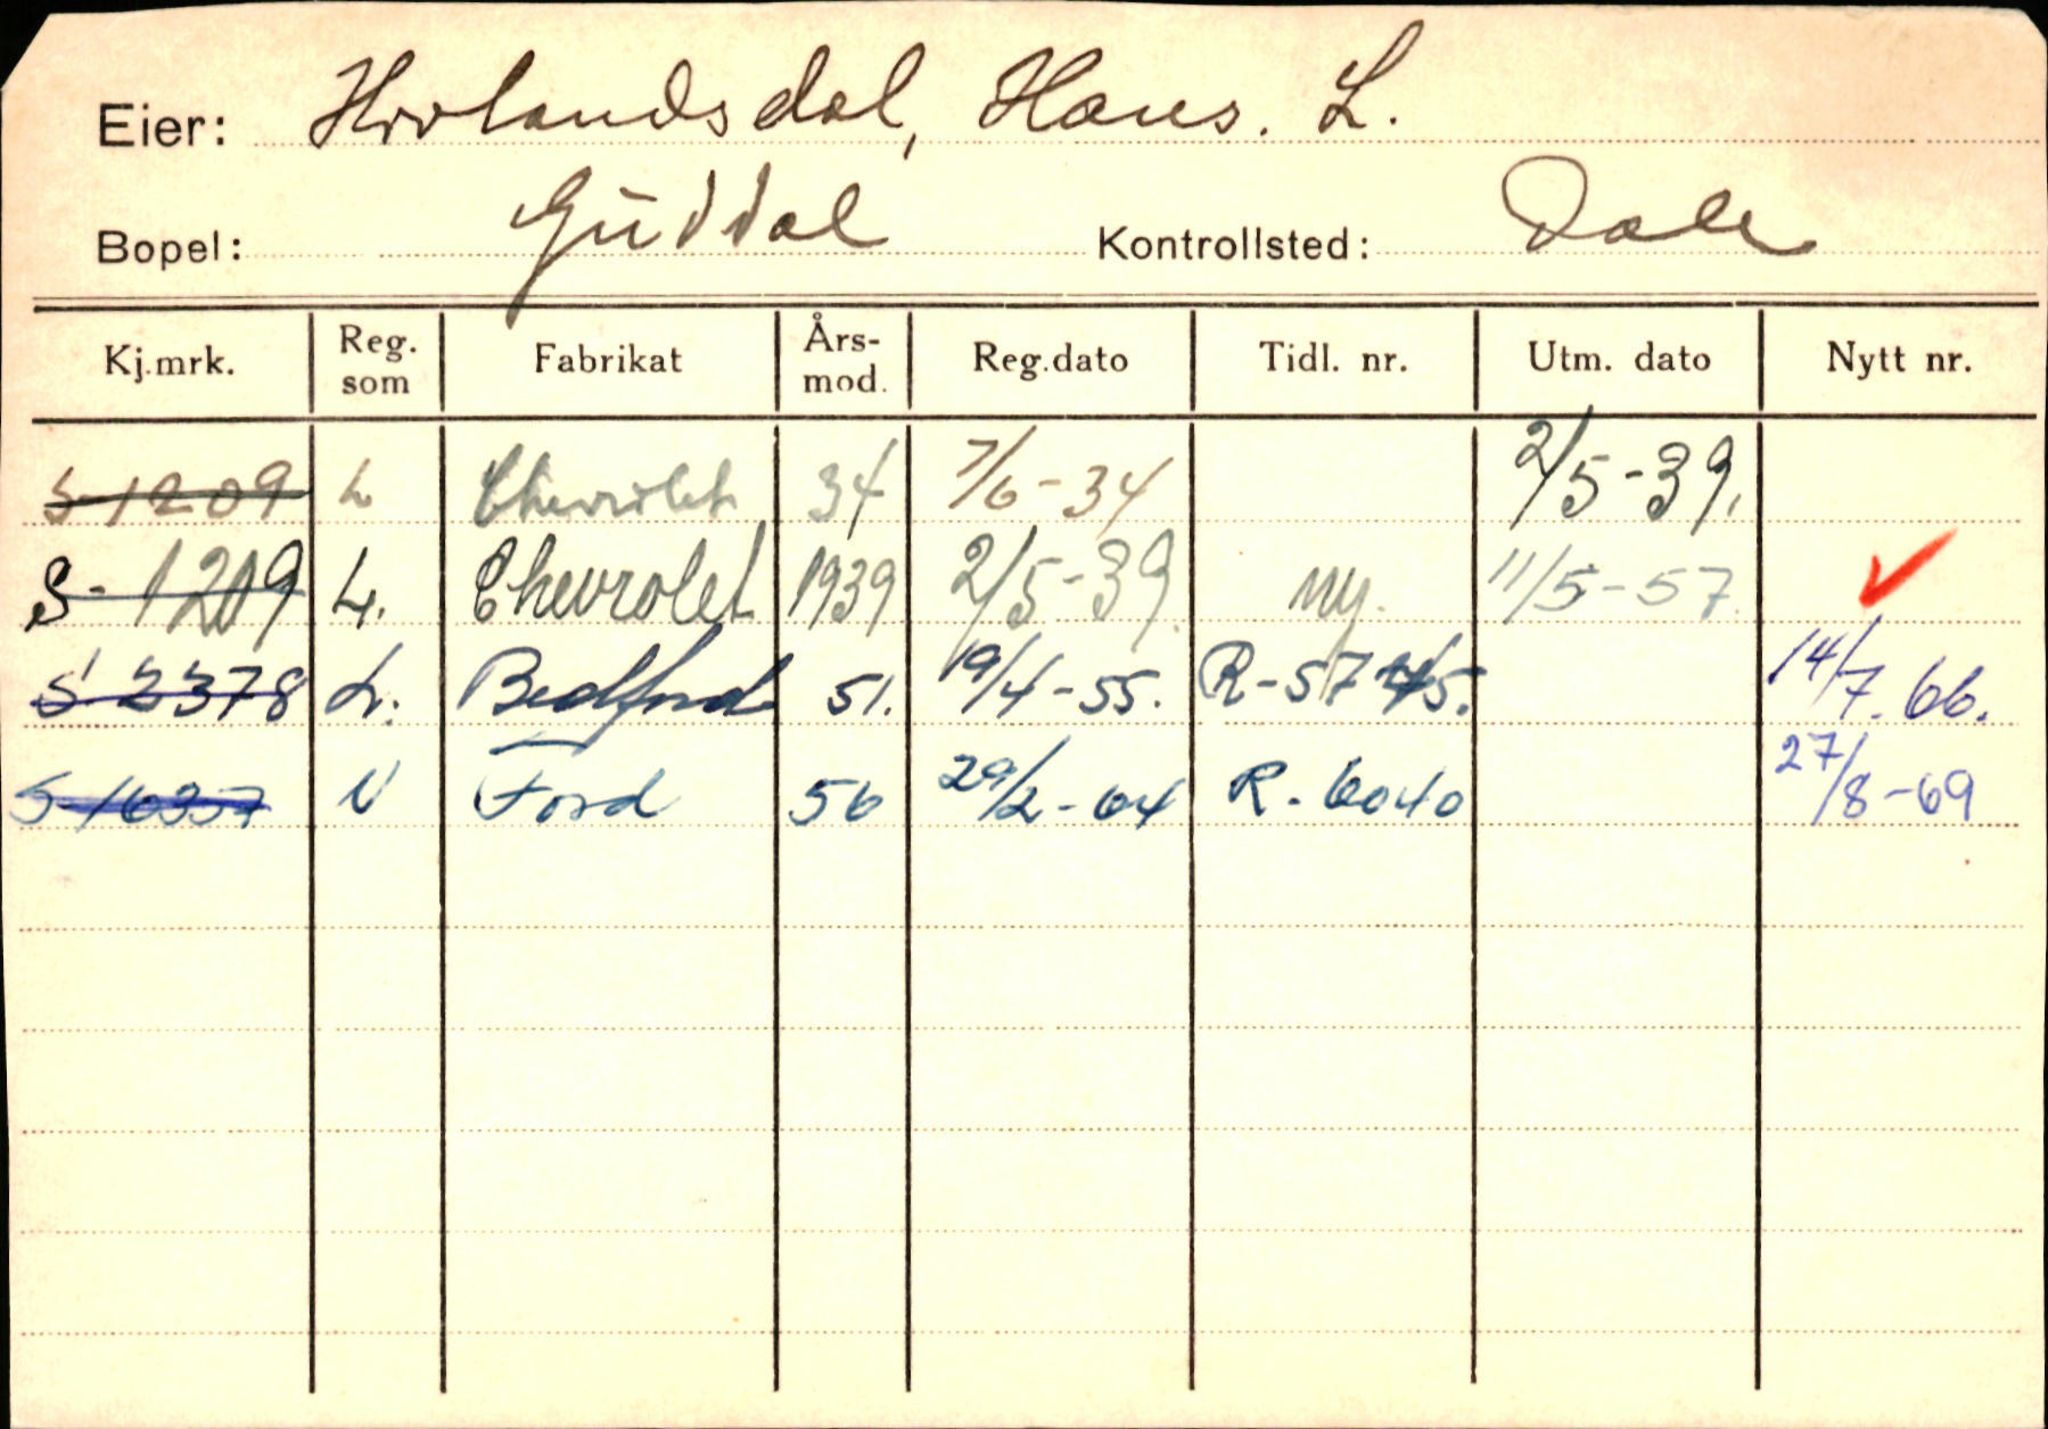 Eier: Hovlandsdal, Hans. L.
Bopel: Guddal Kontrollsted: Dale
Kj.mrk. Reg. som Fabrikat Års-mod. Reg.dato Tidl. nr. Utm. dato Nytt nr.
S-1209 L Chevrolet 34 7/6-34 2/5-39.
S-1209 L. Chevrolet 1939 2/5-39. ny. 11/5-57.
S 2378 L. Bedford 51. 19/4-55. 14/7.66.
S-16357 V Ford 56 29/2-64 R-6040 27/8-69